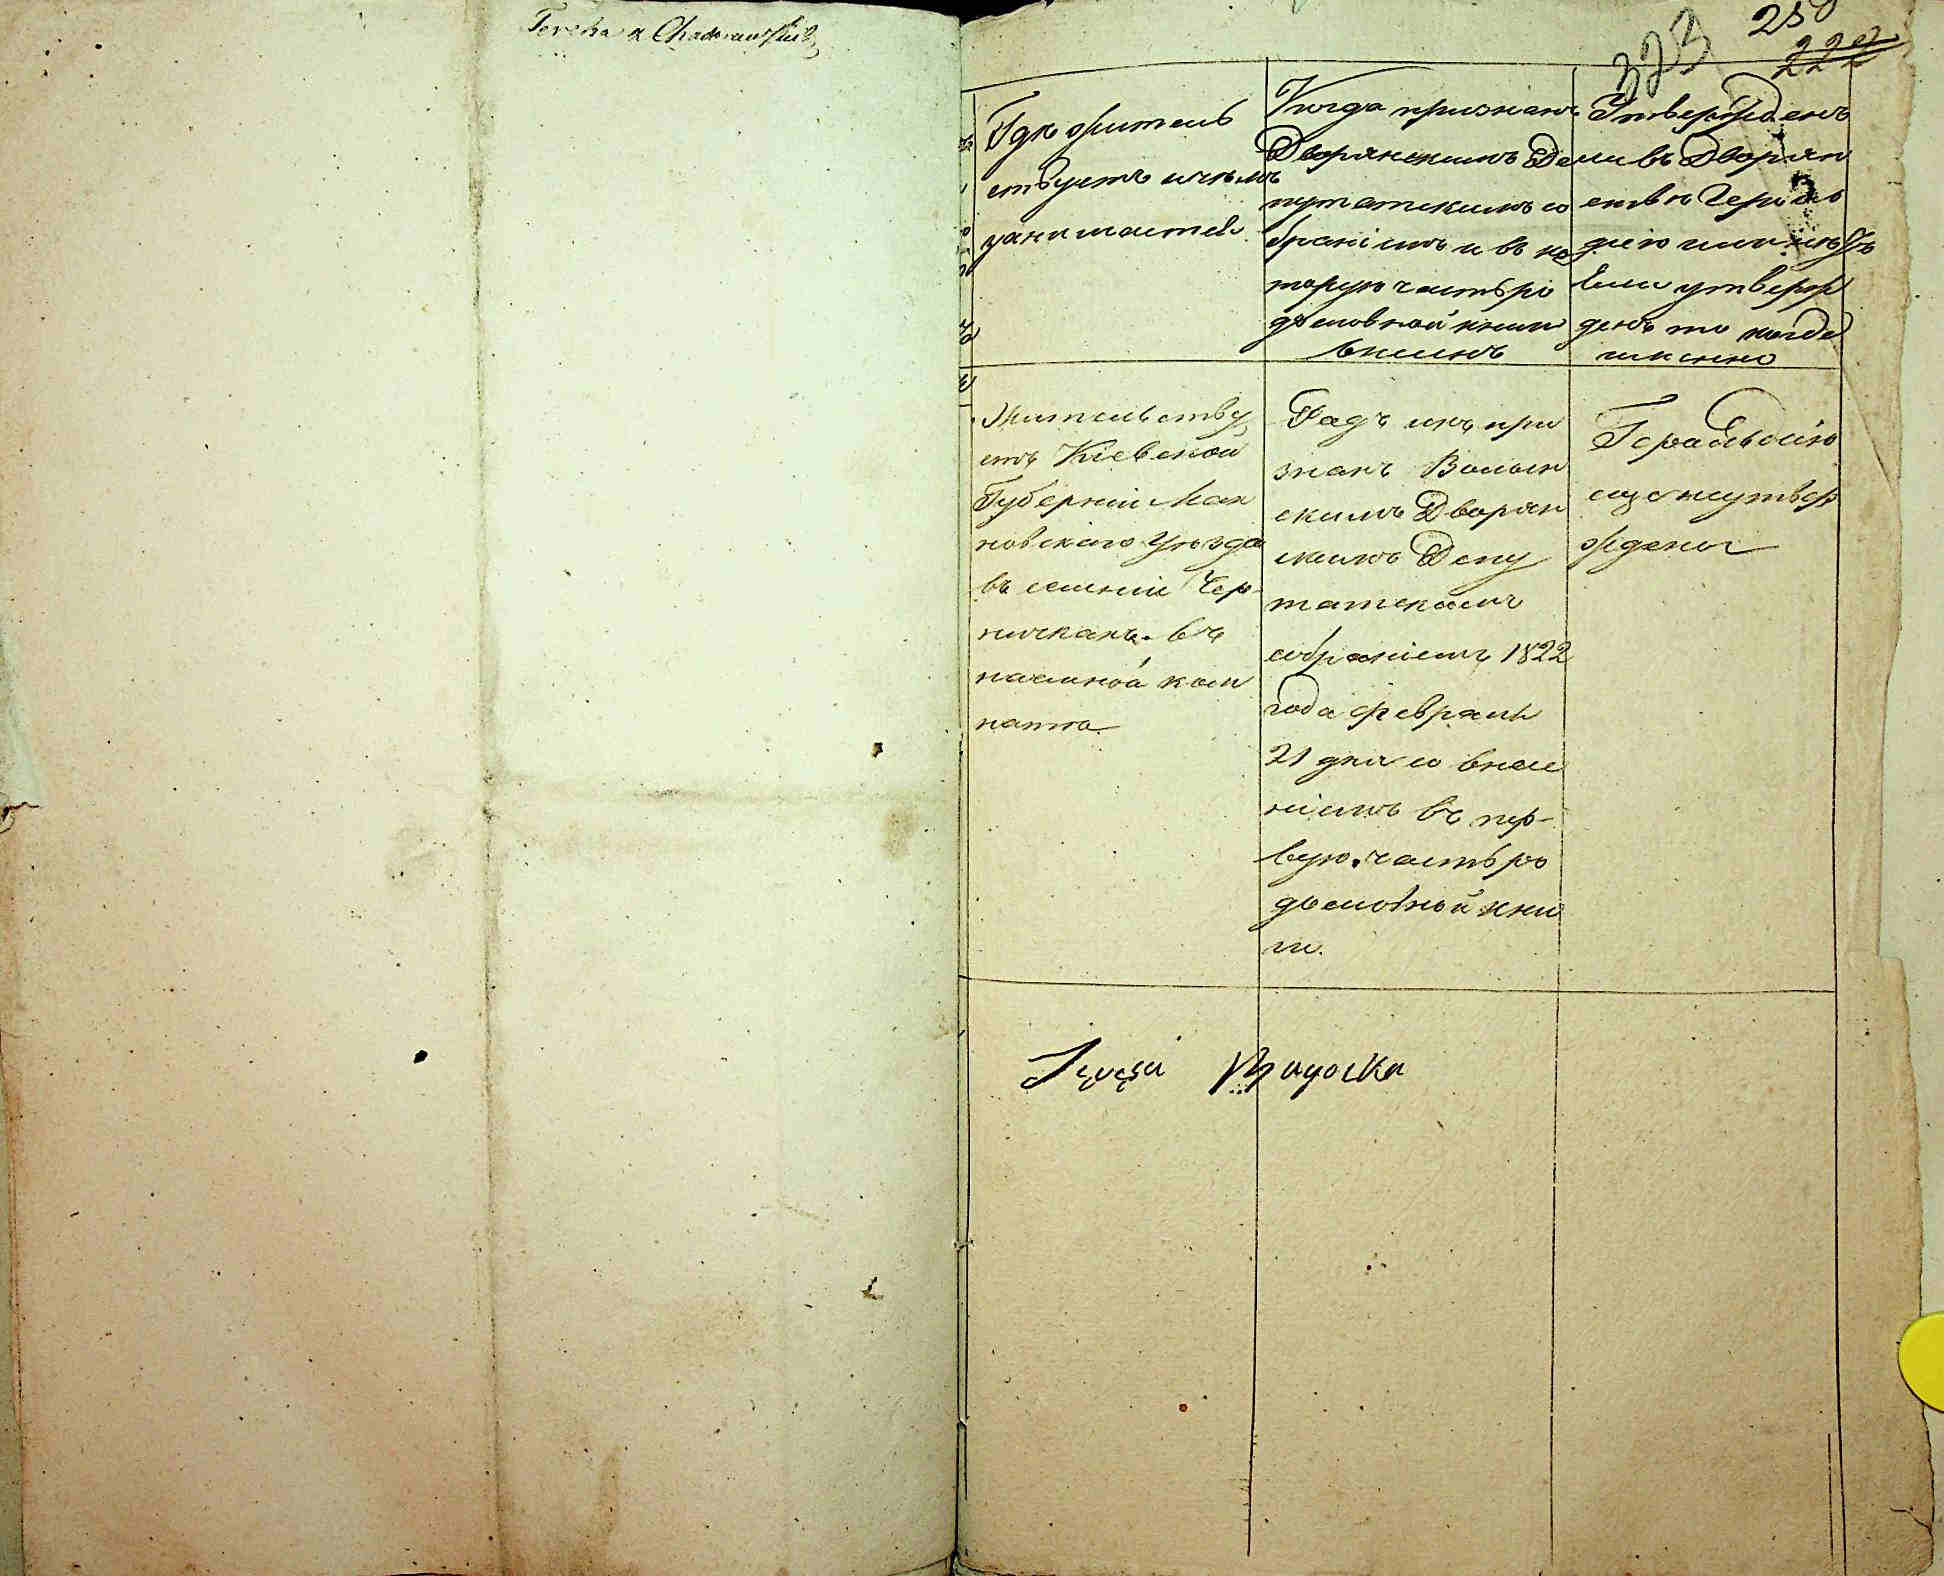 Tereha z Chadorowskich
323
250
222
Гдѣ житель
ствуетъ и чѣмъ
занимается
Когда признанъ
Дворянскимъ Де
путатскимъ со
браніемъ и въ ко
торую часть ро
дословной книги
внесенъ
Утвержденъ
ли въ Дворян
ствѣ Героль
діею или нѣтъ
Если утверж
денъ то когда
именно
Жительству
етъ Кіевской
Губерніи Мах
новскаго Уѣзда
въ селеніи Чер
ничкахъ въ
наемной ком
натѣ
Родъ ихъ при
знанъ Волын
скимъ Дворян
скимъ Депу
татскимъ
собраніемъ 1822
года февраля
21 дня со внесе
ніемъ въ пер-
вую часть ро
дословной кни
ги.
Герольдіею
еще неутвер
ждены